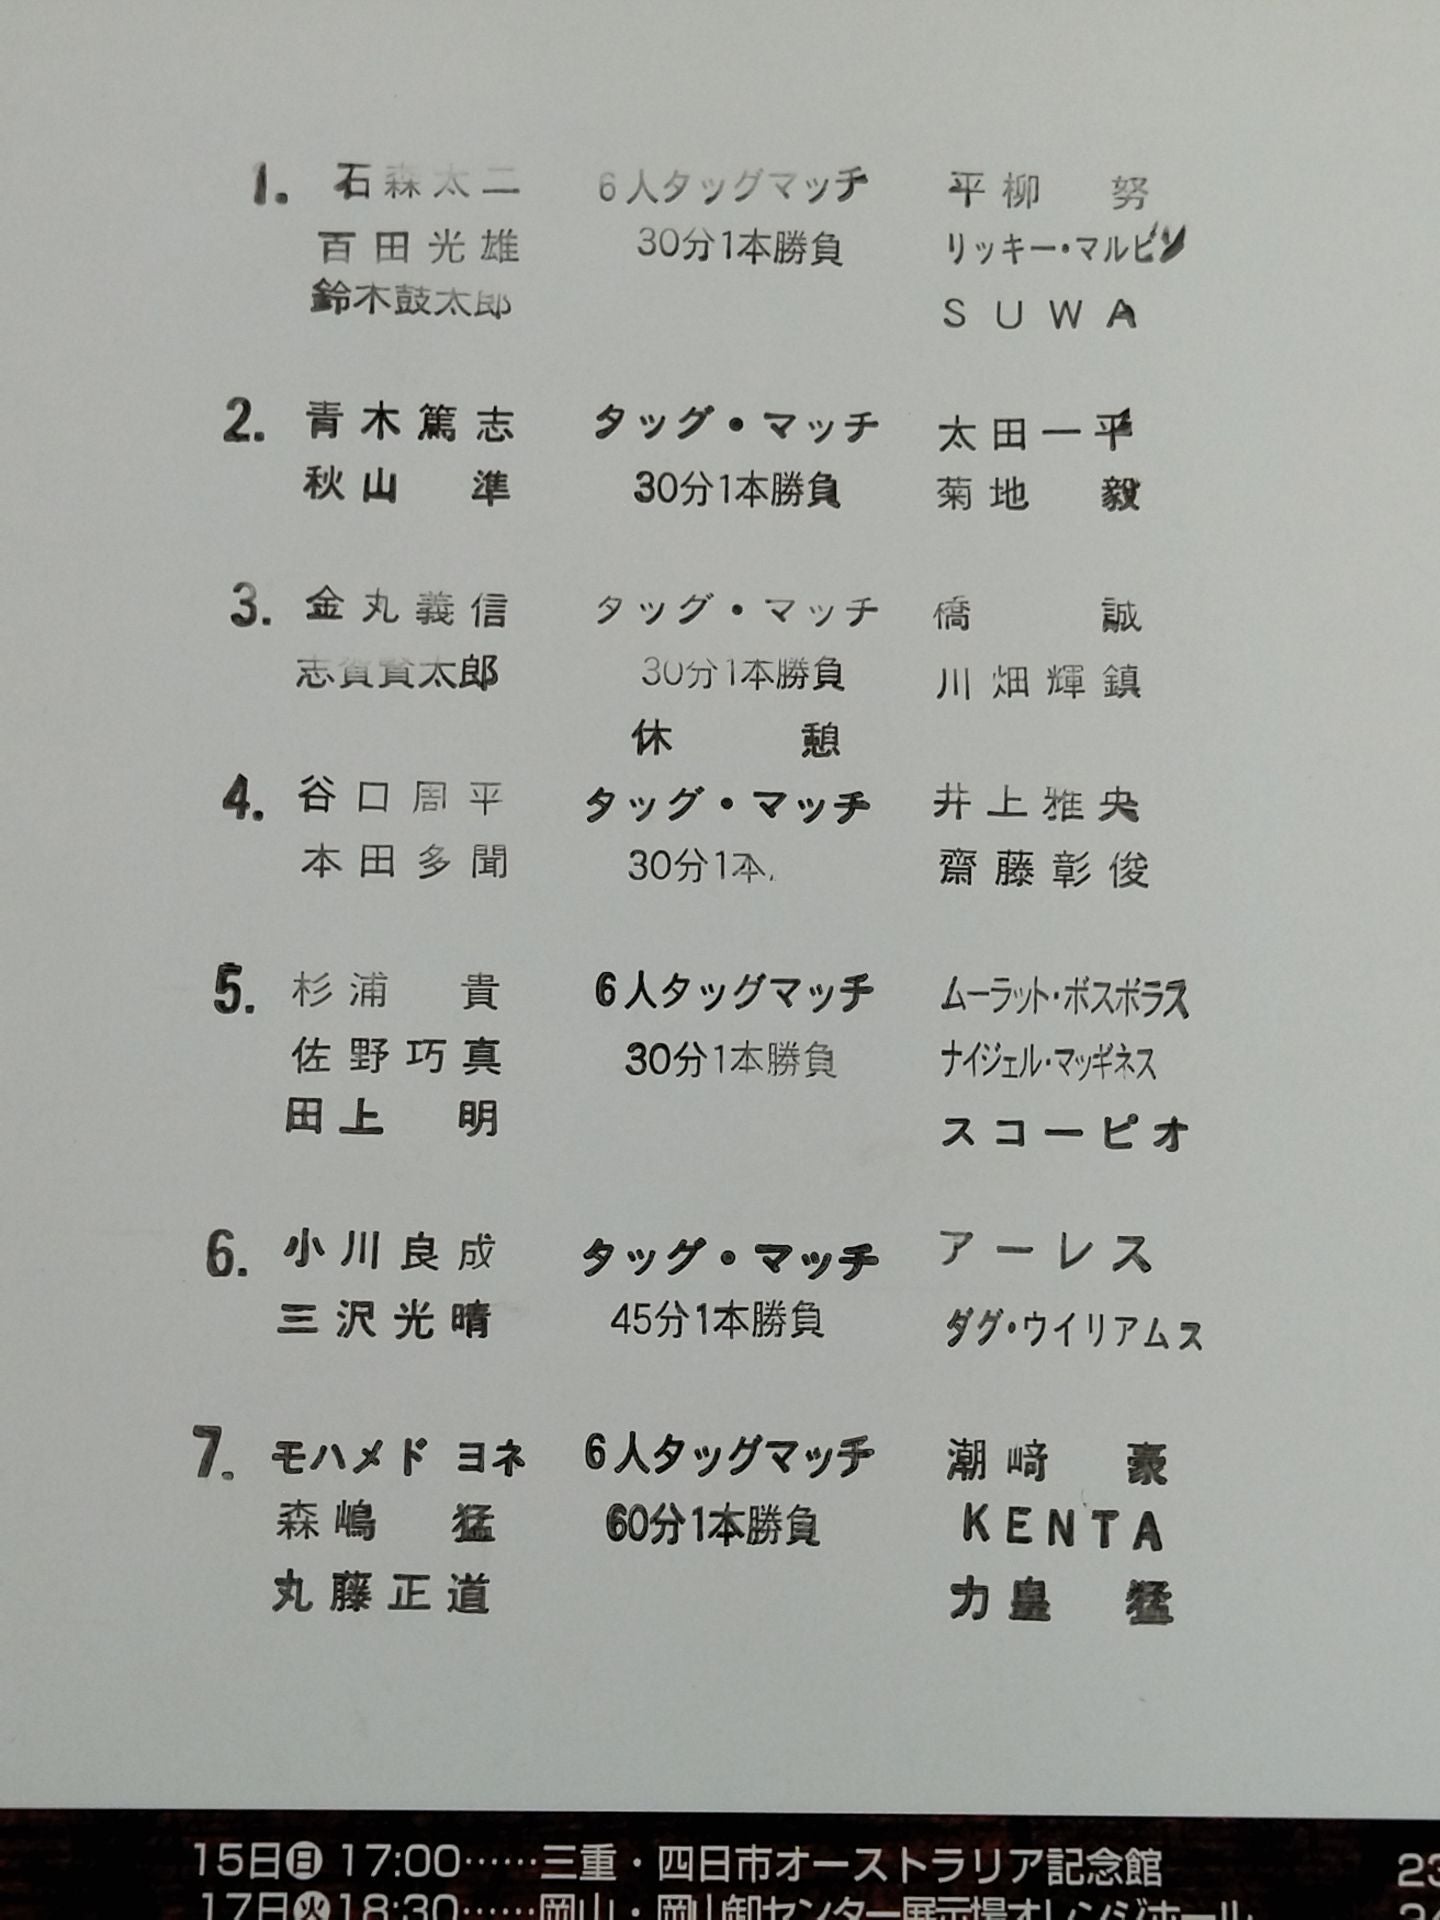 1. 石森太二 6人タッグマッチ 平柳 努
百田光雄 30分1本勝負 リッキー・マルビン
鈴木鼓太郎 SUWA
2. 青木篤志 タッグ・マッチ 太田一平
秋山 準 30分1本勝負 菊地 毅
3. 金丸義信 タッグ・マッチ 橋 誠
志賀賢太郎 30分1本勝負 川畑輝鎮
休 憩
4. 谷口周平 タッグ・マッチ 井上雅央
本田多聞 30分1本 齋藤彰俊
5. 杉浦 貴 6人タッグマッチ ムーラット・ボスポラス
佐野巧真 30分1本勝負 ナイジェル・マッギネス
田上 明 スコーピオ
6. 小川良成 タッグ・マッチ アーレス
三沢光晴 45分1本勝負 ダグ・ウイリアムス
7. モハメド ヨネ 6人タッグマッチ 潮﨑 豪
森嶋 猛 60分1本勝負 KENTA
丸藤正道 力皇 猛
15日㊐17:00……三重・四日市オーストラリア記念館 23
17日㊋18:30……岡山・岡山卸センター展示場オレンジホール